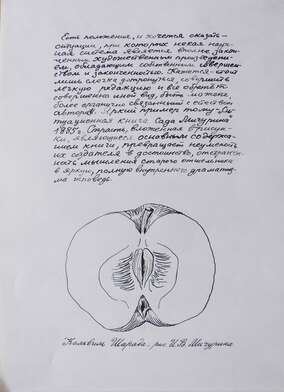 Есть положения, и хочется сказать-
ситуации, при которых некая науч-
ная система является вполне закон-
ченным художественным произведени-
ем, обладающим собственным совершен-
ством и законченностью. Кажется-стоит
лишь слегка дотронуться, совершить
легкую редакцию и все обретет
совершенно иной вид, быть может,
более органично связанный с естеством
авторов. Яркий пример тому
тационная книга Сада Мичурина"
1885г. Страсть, вложенная в рисун-
ки, являющиеся основным содержа-
нием книги, превращает неуместность
их создателя в достоинство, отстранен-
ность мышления старого отшельника
в яркую, полную внутреннего драматиз-
ма исповедь.
Кальвиль Шарава. рис. И.В. Мичурина